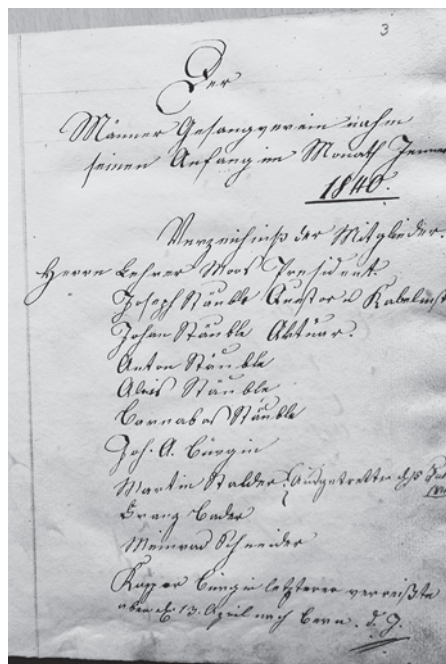 3
Der
Männer Gesangverein nahm
seinen Anfang im Monath Jenner
1840.
Verzeichniß der Mitglieder.
Herrn Lehrer Moos President
Joseph Stäuble Questor
Johan Stäuble Aktuar.
Anton Stäuble
Alois Stäuble
Barnabas Stäuble
Joh. A. Bürgin
Martin Stalder. Ausgetretten
Franz Bader
Meinrad Schneider
Kasper Bürgin letzterer verreißte
aber d. 13. April nach Bern. d. J.